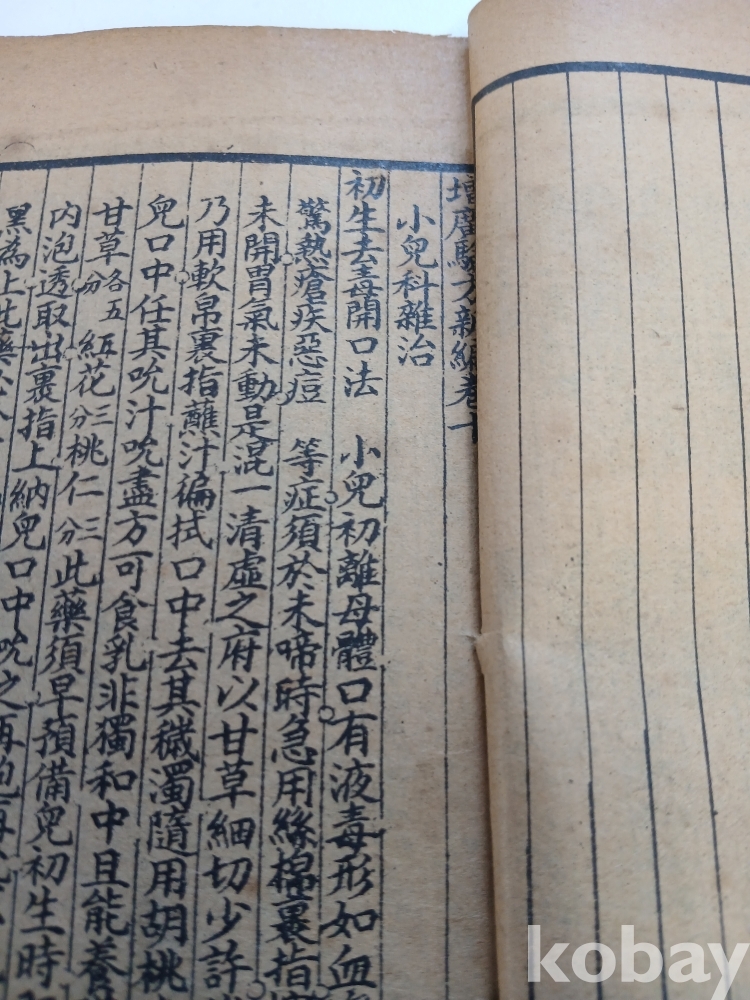 增廣驗方新編卷十
小兒科雜治
初生去毒開口法　小兒初離母體口有液毒形如血
驚熱瘡疾惡痘　等症須於未啼時急用絲棉裹指
未開胃氣未動是混一清虛之府以甘草細切少許
乃用軟帛裹指蘸汁徧拭口中去其穢濁隨用胡桃
兒口中任其吮汁吮盡方可食乳非獨和中且能養
甘草各五分紅花三分桃仁三分此藥須早預備兒初生時
內泡透取出裹指上納兒口中吮之再泡再
黑為上此藥
kobay